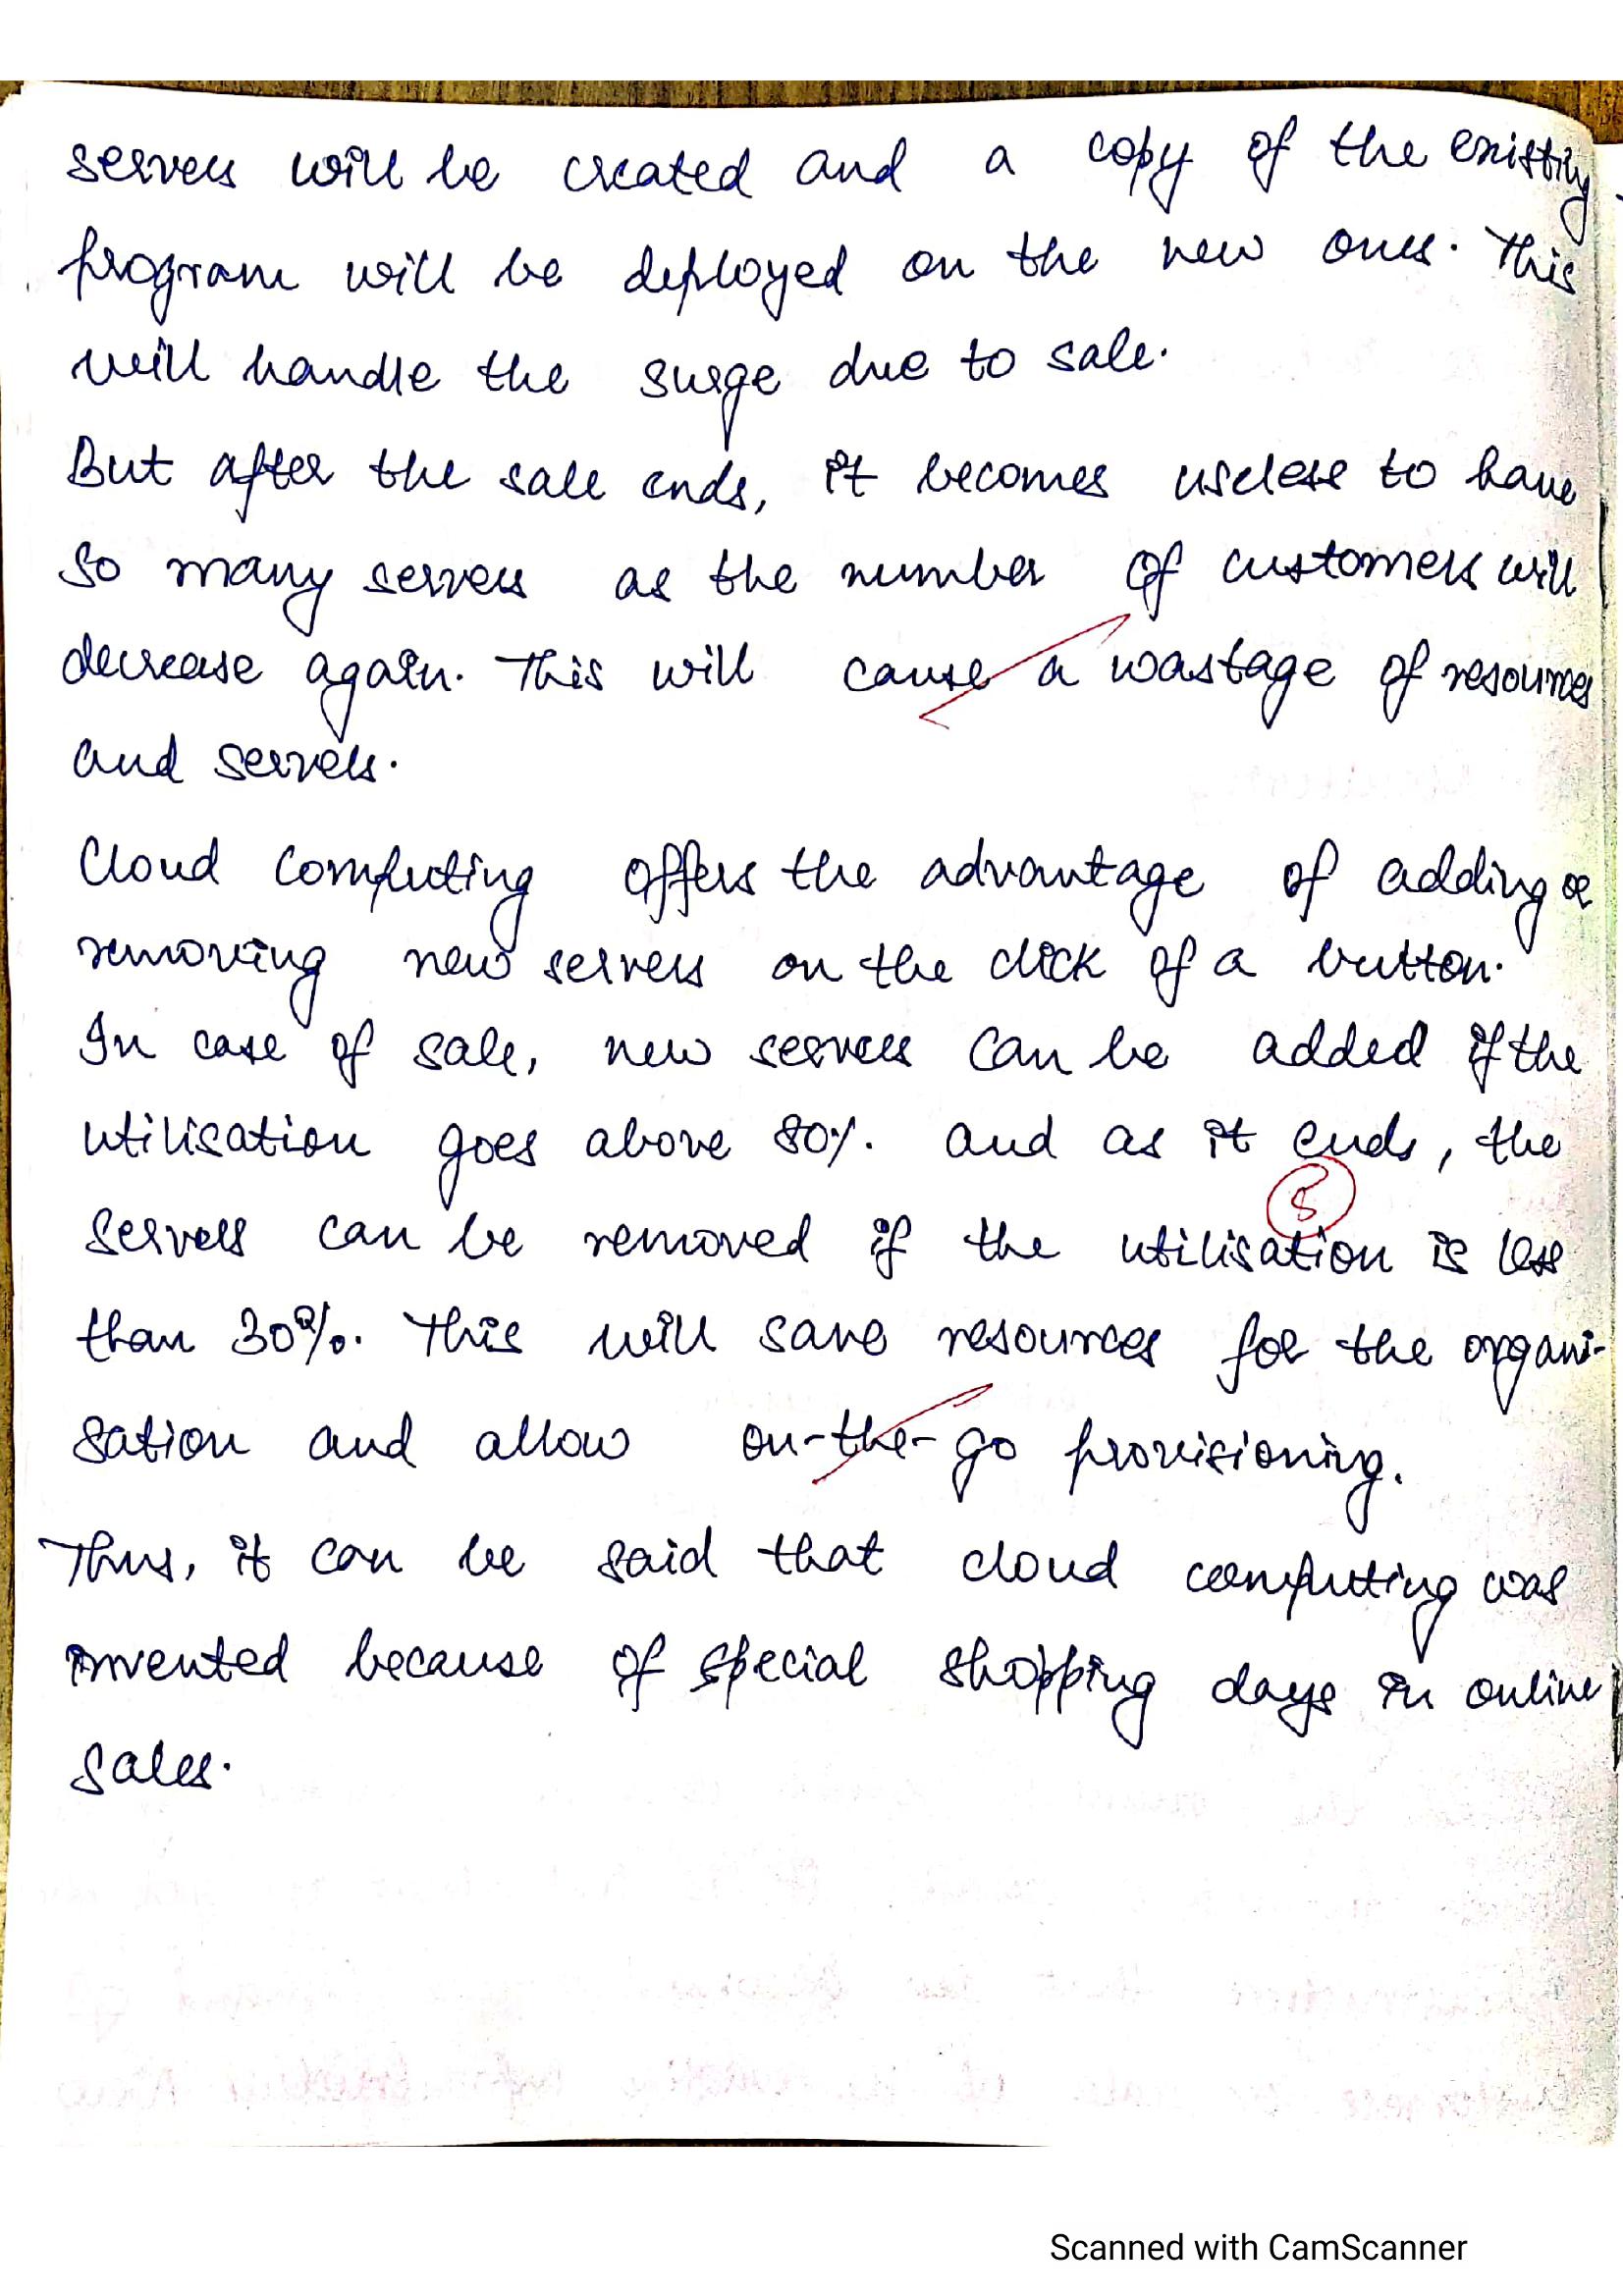 servers will be created and a copy of the existing
program will be deployed on the new ones. This
will handle the surge due to sale.
But after the sale ends, it becomes useless to have
so many servers as the number of customers will
decrease again. This will cause a wastage of resources
and servers.
Cloud computing offers the advantage of adding or
removing new servers on the click of a button.
In case of sale, new servers can be added if the
utilisation goes above 80%. and as it ends, the
5
servers can be removed if the utilisation is less
than 30%. This will save resources for the organi-
sation and allow on-the-go provisioning.
Thus, it can be said that cloud computing was
invented because of special shopping days in online
sales.
Scanned with CamScanner